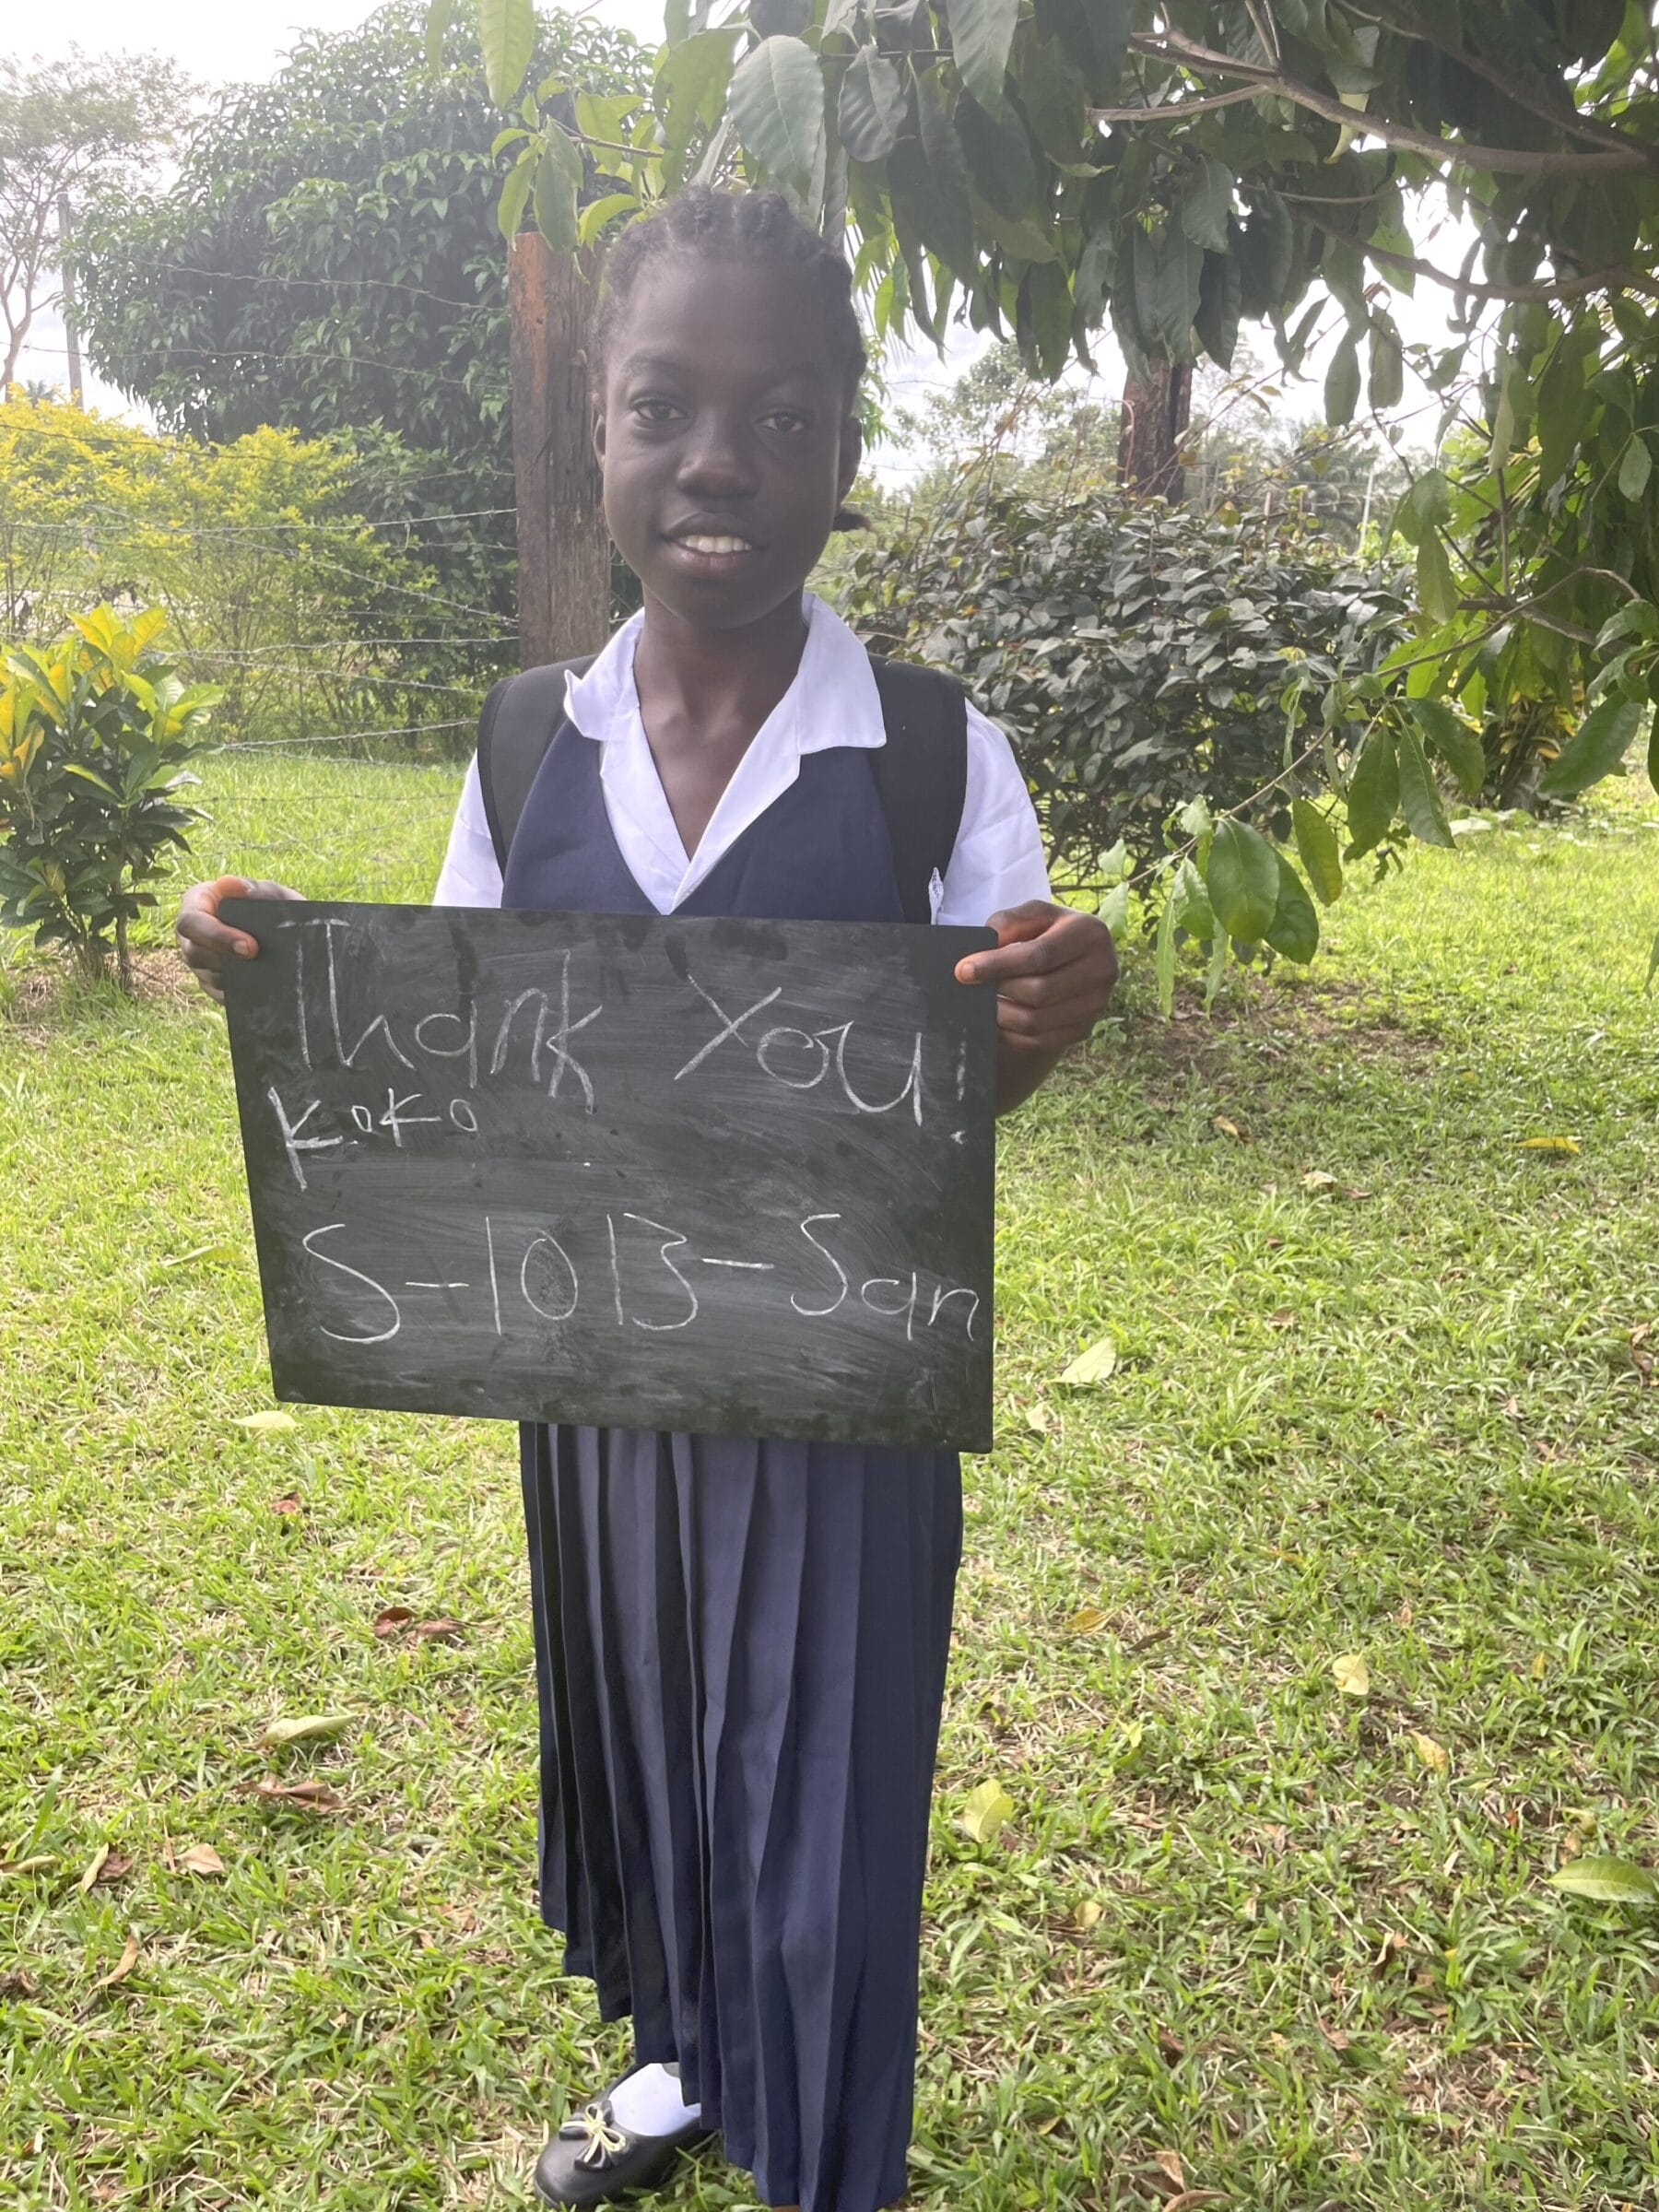 Thank You!
Koko
S-1013-San